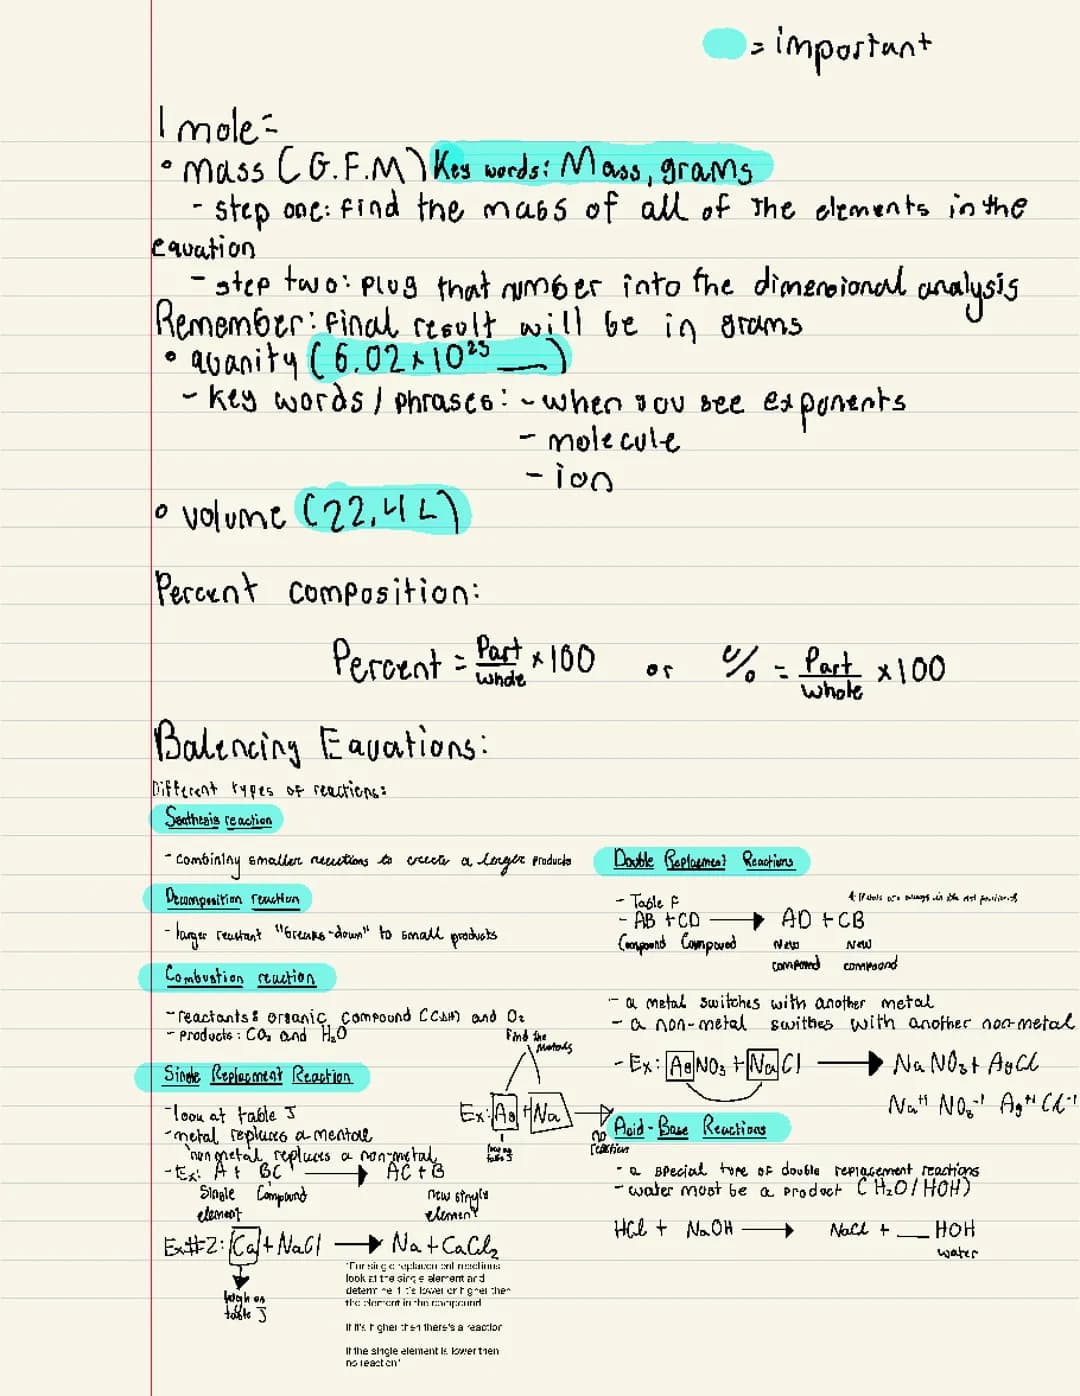 = important
1 mole=
• mass (G.F.M) Key words: Mass, grams
- step one: find the mass of all of The elements in the
equation
- step two: plug that number into the dimensional analysis
Remember: final result will be in grams
• quanity (6.02x10²³ __)
- key words / phrases: - when you see exponents
- molecule
- ion
• volume (22.4 L)
Percent composition:
Percent = Part/whole x100 or % = Part/whole x100
Balencing Equations:
Different types of reactions:
Synthesis reaction
- combining smaller reactions to create a larger products
Decomposition reaction
- larger reactant "breaks-down" to small products
Combustion reaction
- reactants: organic compound (C&H) and O₂
- products: CO₂ and H₂O
Single Replacement Reaction
- look at table J
- metal replaces a
nonmetal replaces a non-metal
- Ex: A + BC → AC + B
Single element Compound new single element
Ex: Ag + Na → no reaction
Find the Metals
Ex#2: Ca + NaCl → Na + CaCl₂
high on table J
"For single replacement reactions
look at the single element and
determine if it's lower or higher then
the element in the compound
If it's higher then there's a reaction
If the single element is lower then
no reaction"
Double Replacement Reactions
- Table F
- AB + CD → AD + CB
Compound Compound New compound New compound
- a metal switches with another metal
- a non-metal swithes with another non-metal
- Ex: AgNO₃ + NaCl → NaNO₃ + AgCl
Na⁺¹ NO₃⁻¹ Ag⁺¹ Cl⁻¹
Acid-Base Reactions
- a special type of double replacement reactions
- water most be a product (H₂O/HOH)
HCl + NaOH → NaCl + __ HOH
water